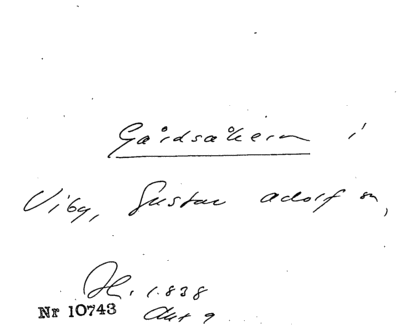 Gårdsåkern i
Viby, Gustav Adolf sn,
Hl. 1.838
Nr 10743 Akt 9